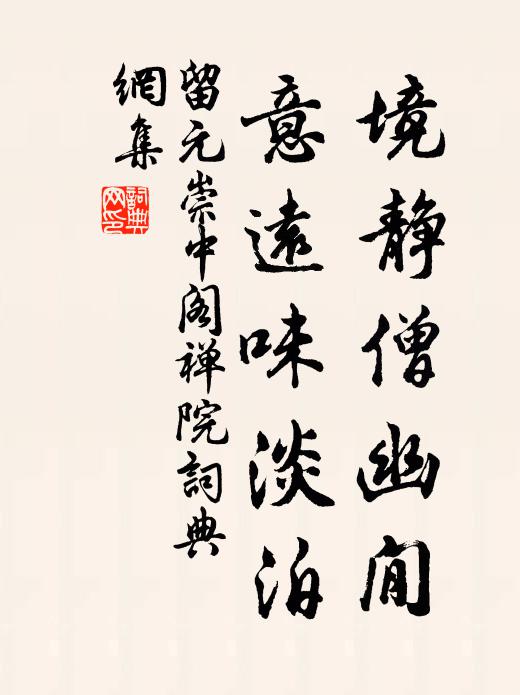 境静僧幽閒
意遠味淡泊
留元崇中阁禅院詞典
網集
詞典
网印